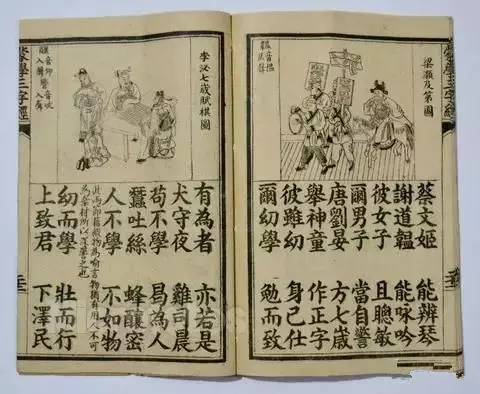 梁灝及第圖
蔡文姬 能辨琴
謝道韞 能咏吟
彼女子 且聰敏
爾男子 當自警
唐劉晏 方七歲
舉神童 作正字
彼雖幼 身已仕
爾幼學 勉而致
李泌七歲賦棋圖
有為者 亦若是
犬守夜 雞司晨
苟不學 曷為人
蠶吐絲 蜂釀蜜
人不學 不如物
物為喻言物猶有用人不可
為棄材所以深策之也
幼而學 壯而行
上致君 下澤民
蒙學三字經